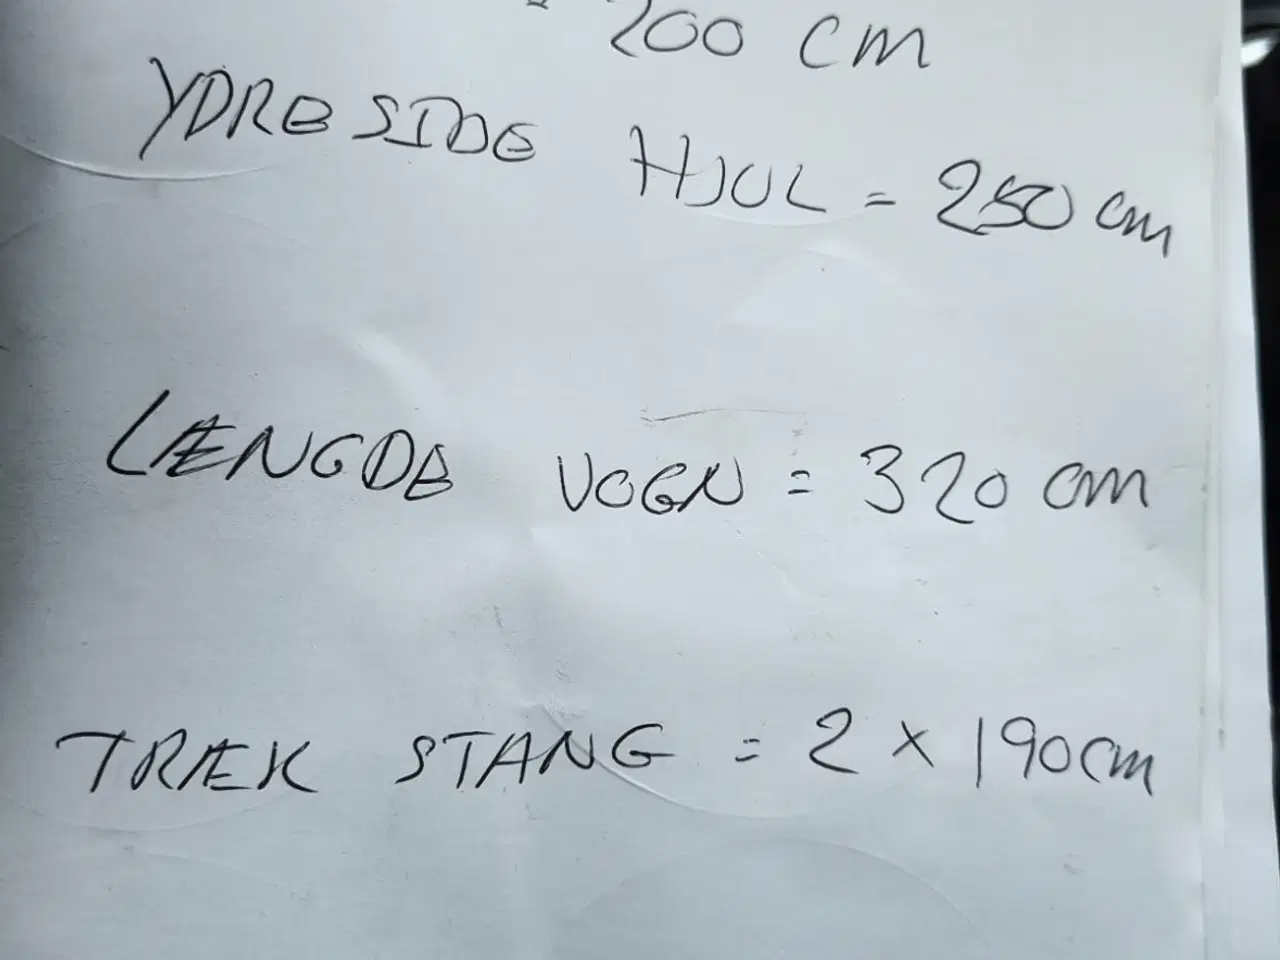 200 cm
YDRE SIDE HJUL = 250 cm
LÆNGDE VOGN = 320 cm
TRÆK STANG = 2 x 190 cm